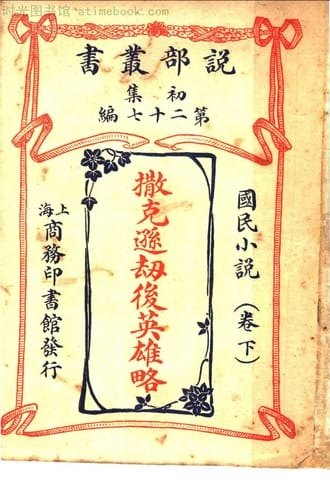 时光图书馆 atimebook.com
説部叢書
初集
第二十七編
國民小説（卷下）
撒克遜劫後英雄略
上海
商務印書館發行